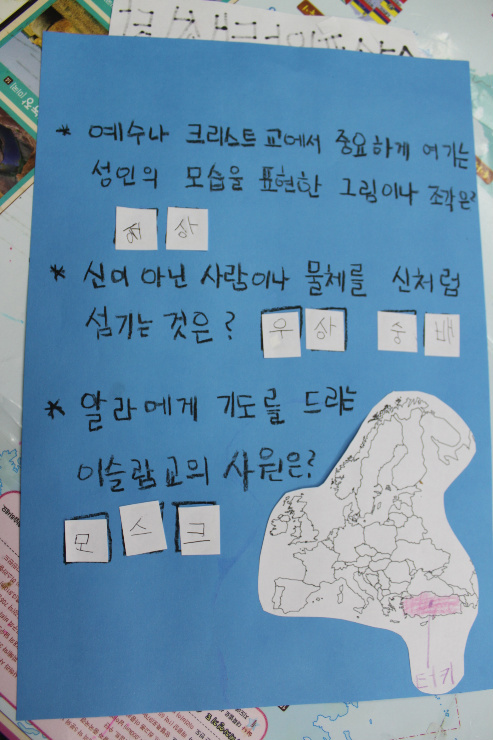 * 예수나 크리스트교에서 중요하게 여기는
성인의 모습을 표현한 그림이나 조각은?
상
* 신이 아닌 사람이나 물체를 신처럼
섬기는 것은? 우상 숭배
* 알라에게 기도를 드리는
이슬람교의 사원은?
모스크
터키